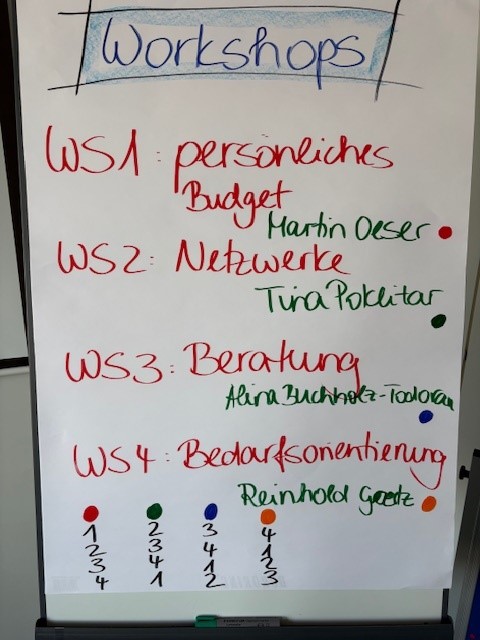 Workshops
WS1: persönliches
Budget
Martin Oeser
WS2: Netzwerke
Tina Poklitar
WS3: Beratung
Alina Buchholz-Todoran
WS4: Bedarfsorientierung
Reinhold Goetz
1 2 3 4
2 3 4 1
3 4 1 2
4 1 2 3